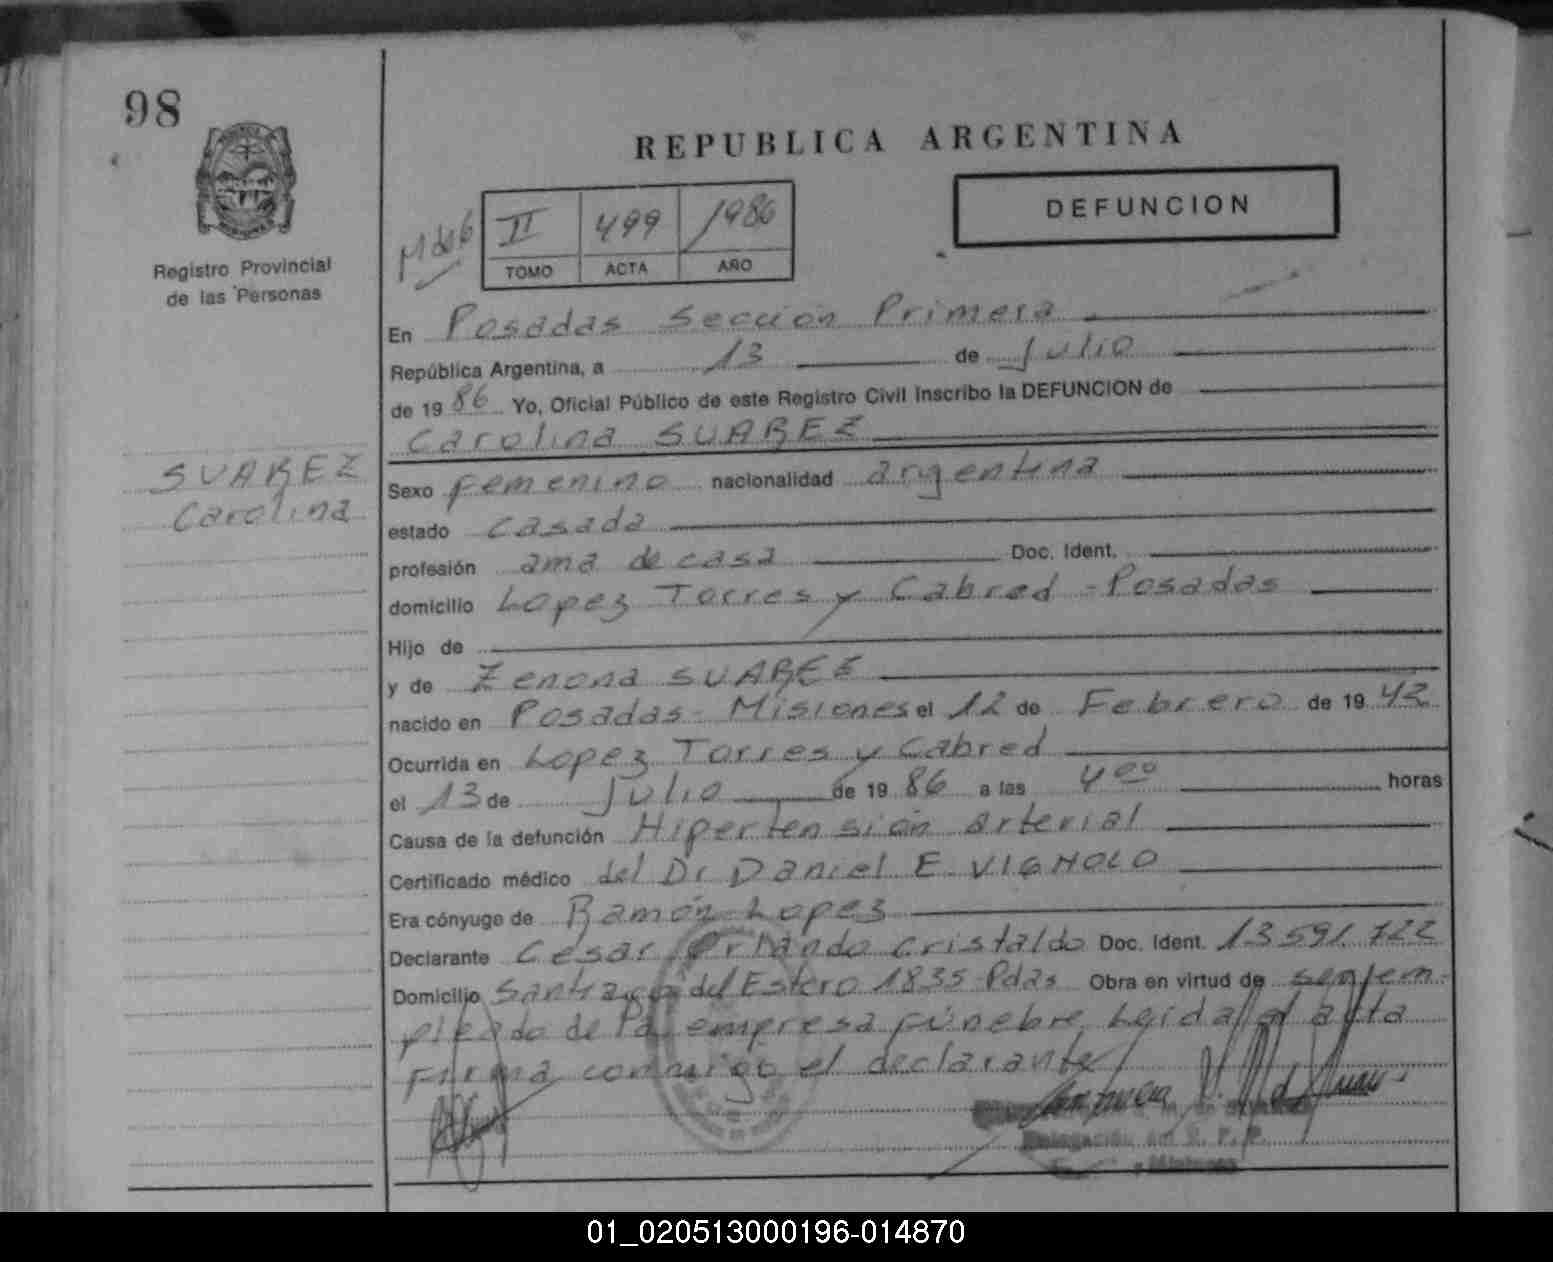 98
REPUBLICA ARGENTINA
DEFUNCION
II 499 1986
TOMO ACTA AÑO
Registro Provincial
de las Personas
En Posadas Sección Primera
República Argentina, a 13 de Julio
de 19 86 Yo, Oficial Público de este Registro Civil Inscribo la DEFUNCION de
Carolina SUAREZ
SUAREZ
Carolina
Sexo Femenino nacionalidad argentina
estado casada
profesión ama de casa Doc. Ident.
domicilio Lopez Torres y Cabred - Posadas
Hijo de
y de Zenona SUAREZ
nacido en Posadas - Misiones el 12 de Febrero de 19 42
Ocurrida en Lopez Torres y Cabred
el 13 de Julio de 19 86 a las 4 00 horas
Causa de la defunción Hipertensión arterial
Certificado médico del Dr Daniel E. VIGNOLO
Era cónyuge de Ramón Lopez
Declarante Cesar Orlando Cristaldo Doc. Ident. 13 591 722
Domicilio Santiago del Estero 1835 - Pdas Obra en virtud de ser em-
pleado de la empresa fúnebre Leida el acta
Firma conmigo el declarante
01_020513000196-014870